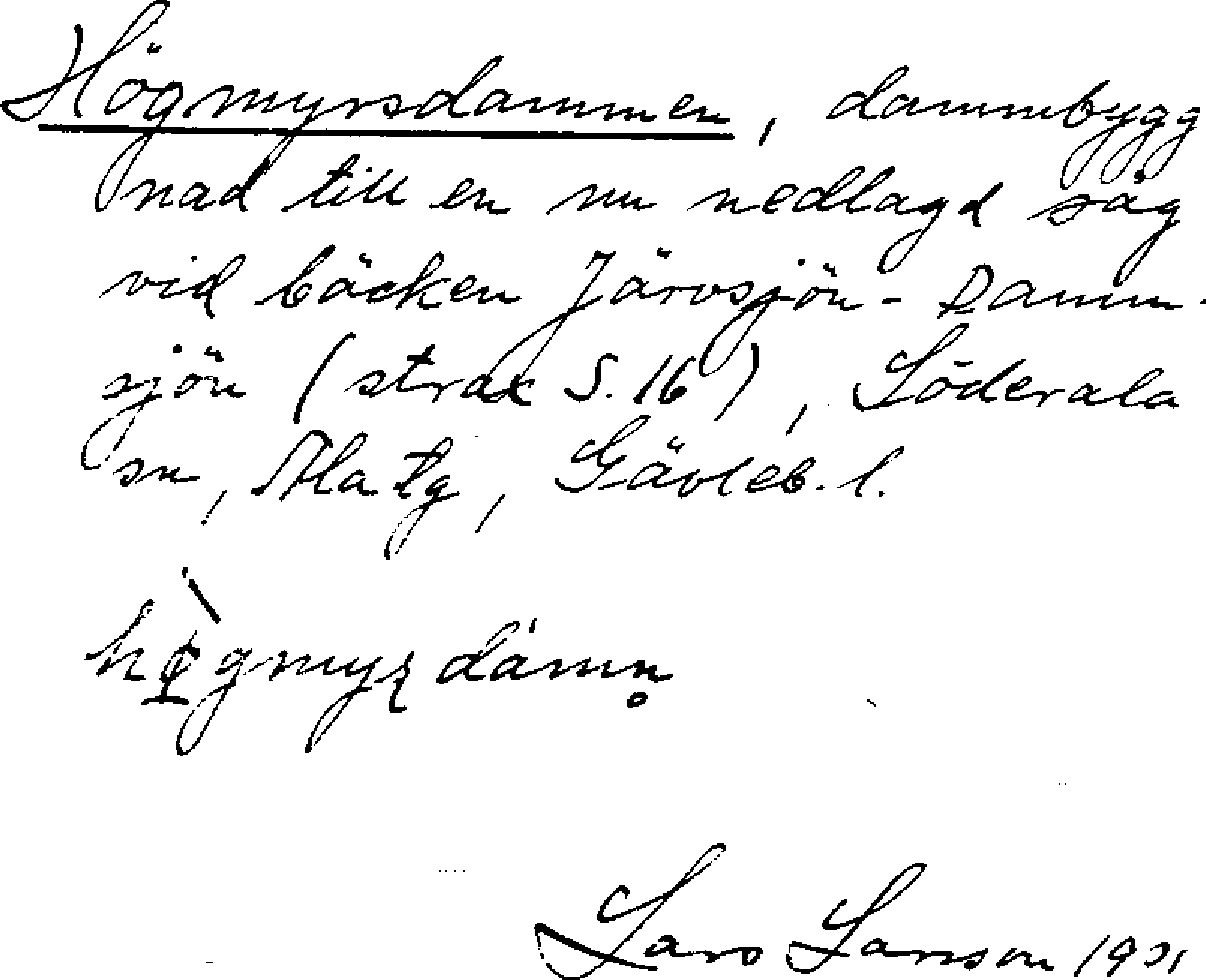 Högmyrsdammen, dammbygg
nad till en nu nedlagd såg
vid bäcken Järvsjön - Damm-
sjön (strax S. 16), Söderala
sn, Ala tg, Gävleb. l.
Lars Larsson